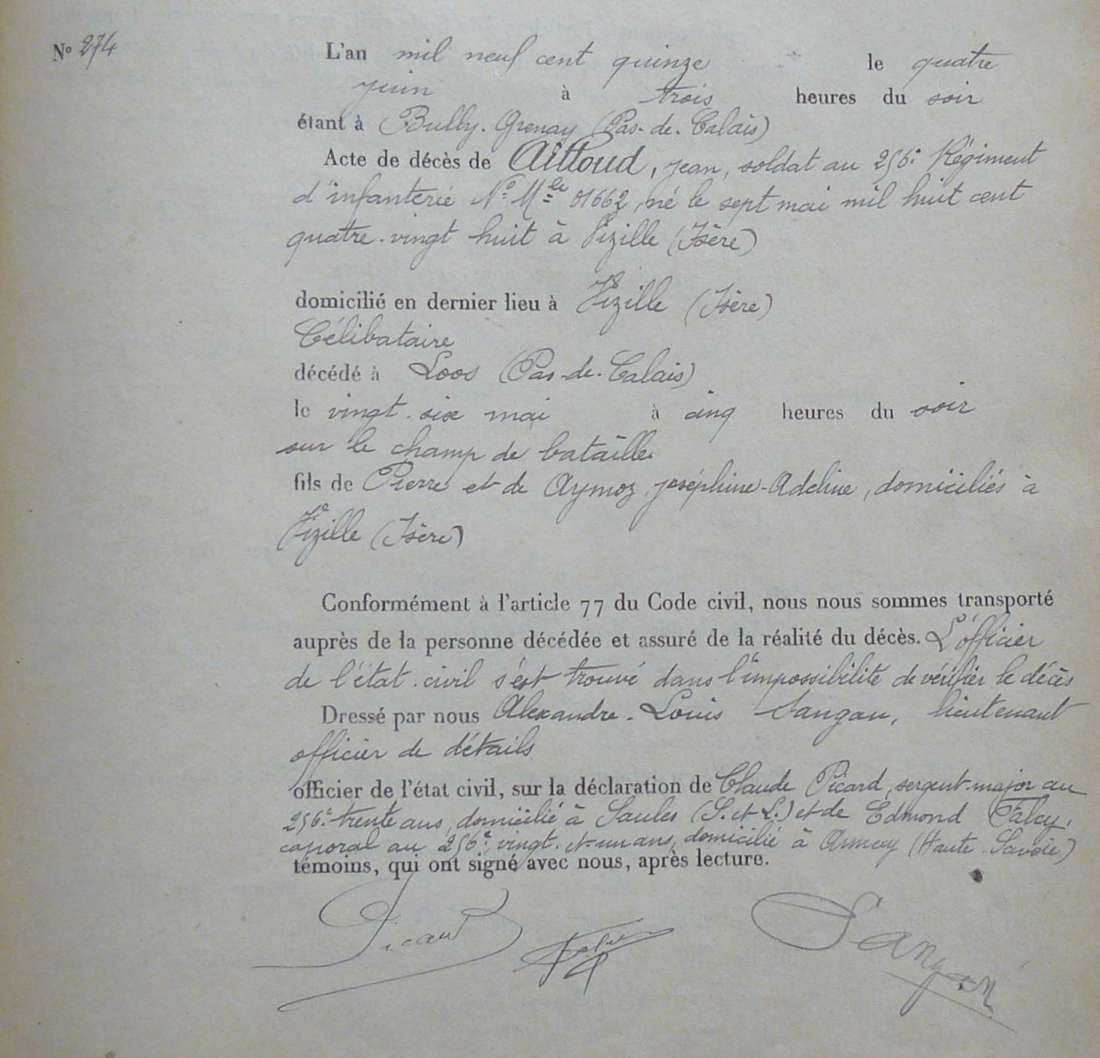 N° 274
L'an mil neuf cent quinze le quatre
juin à trois heures du soir
étant à Bully-Grenay (Pas-de-Calais)
Acte de décès de Aittoud, jean, soldat au 256e Régiment
d'infanterie N° Mle 01662, né le sept mai mil huit cent
quatre-vingt huit à Vizille (Isère)
domicilié en dernier lieu à Vizille (Isère)
Célibataire
décédé à Loos (Pas-de-Calais)
le vingt-six mai à cinq heures du soir
sur le champ de bataille
fils de Pierre et de Aymoz, joséphine-Adeline, domiciliés à
Vizille (Isère)
Conformément à l'article 77 du Code civil, nous nous sommes transporté
auprès de la personne décédée et assuré de la réalité du décès. L'officier
de l'état-civil s'est trouvé dans l'impossibilité de vérifier le décès
Dressé par nous Alexandre-Louis Sangan, lieutenant
officier de détails
officier de l'état civil, sur la déclaration de Claude Picard, sergent-major au
256e trente ans, domicilié à Saules (S. et L.) et de Edmond Falcy,
caporal au 256e, vingt-et-un ans, domicilié à Annecy (Haute-Savoie)
témoins, qui ont signé avec nous, après lecture.
Picard Sangan